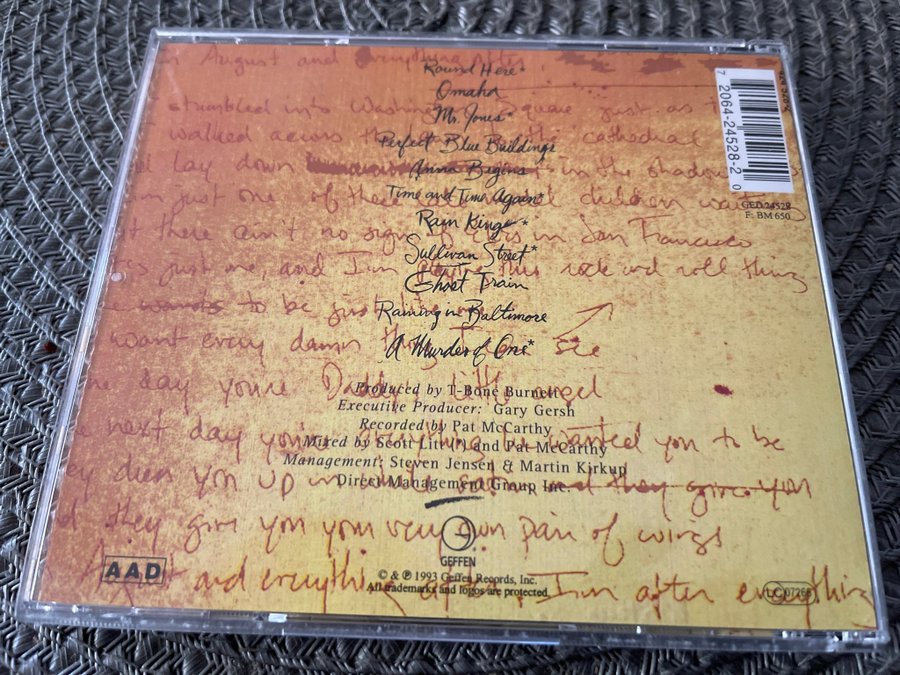 n August and everything after
Round Here*
Omaha
stumbled into Washing Square just as t
Mr. Jones*
walked across the the cathedral
Perfect Blue Buildings
lay down in the shadow
Anna Begins
just one of these children waiting
Time and Time Again*
Rain King*
there ain't no sign is in San Francisco
Sullivan Street*
just me, and I'm this rock and roll thing
Ghost Train
wants to be just
Raining in Baltimore
want every damn thing I see
A Murder of One*
day you're Daddy's little angel
Produced by T-Bone Burnett
Executive Producer: Gary Gersh
Recorded by Pat McCarthy
next day you're wanted you to be
Mixed by Scott Litt(*) and Pat McCarthy
Management: Steven Jensen & Martin Kirkup
dress you up in and they give you
Direct Management Group Inc.
they give you your very own pair of wings
GEFFEN
AAD
and everything after I'm after everything
© & ℗ 1993 Geffen Records, Inc.
All trademarks and logos are protected.
LC 07266
7 2064-24528-2 0
GED 24528
F: BM 650